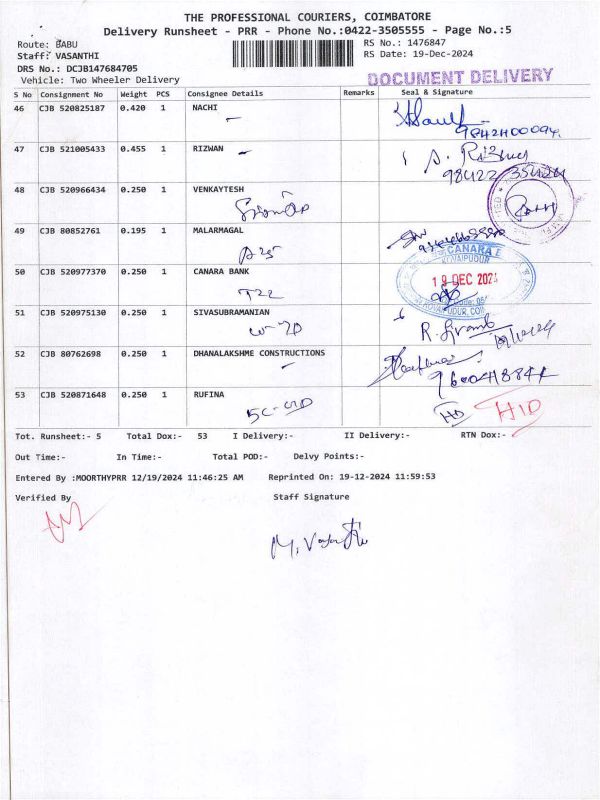 THE PROFESSIONAL COURIERS, COIMBATORE
Delivery Runsheet - PRR - Phone No.:0422-3505555 - Page No.:5
Route: BABU
RS No.: 1476847
Staff: VASANTHI
RS Date: 19-Dec-2024
DRS No.: DCJB147684705
Vehicle: Two Wheeler Delivery
DOCUMENT DELIVERY
S No Consignment No Weight PCS Consignee Details Remarks Seal & Signature
46 CJB 520825187 0.420 1 NACHI
47 CJB 521005433 0.455 1 RIZWAN
48 CJB 520966434 0.250 1 VENKAYTESH
49 CJB 80852761 0.195 1 MALARMAGAL
50 CJB 520977370 0.250 1 CANARA BANK
CANARA
KOVAIPUDUR
51 CJB 520975130 0.250 1 SIVASUBRAMANIAN
52 CJB 80762698 0.250 1 DHANALAKSHME CONSTRUCTIONS
53 CJB 520871648 0.250 1 RUFINA
HD HID
Tot. Runsheet:- 5 Total Dox:- 53 I Delivery:- II Delivery:- RTN Dox:-
Out Time:- In Time:- Total POD:- Delvy Points:-
Entered By :MOORTHYPRR 12/19/2024 11:46:25 AM Reprinted On: 19-12-2024 11:59:53
Verified By Staff Signature